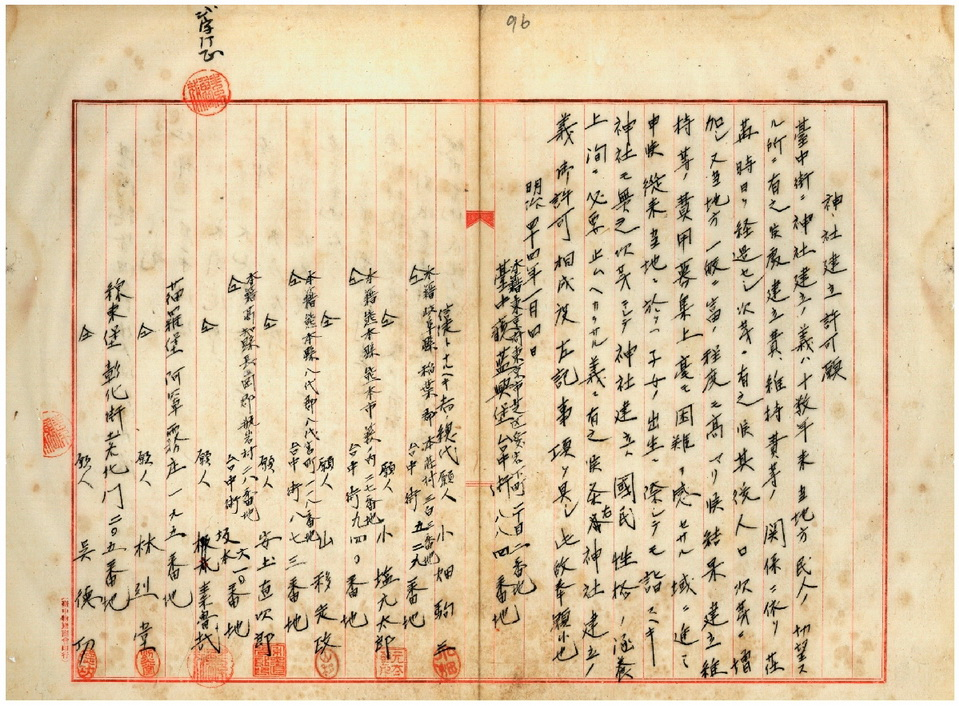 96
神社建立許可願
臺中街ニ神社建立ノ義ハ十数年来当地方民人ノ切望ス
ル所ニ有之候處建立費維持費等ノ関係ニ依リ荏
苒時日ヲ経過セシ次第ニ有之候其後人口ハ次第ニ増
加シ又当地方一般ニ富ノ程度モ高マリ候結果建立維
持等ノ費用募集上毫モ困難ヲ感セサル域ニ進ミ
申候従来当地ニ於テハ子女ノ出生ニ際シテモ詣スヘキ
神社モ無之次第ニシテ神社建立ハ國民性格ノ涵養
上洵ニ必要止ムヘカラサル義ニ有之候条右神社建立ノ
義御許可相成度左記事項ヲ具シ此段奉願候也
明治四十四年一月四日
本籍東京府東京市芝区 下町二丁目二番地
臺中廳藍興堡台中街八八四番地
 人総代願人 小畑駒三
本籍岐阜縣稲葉郡本荘村三百三番地
台中街五二九番地
仝 仝 願人 小塩元太郎
本籍熊本縣熊本市 町二七番地
台中街九四〇番地
仝 願人 山移定政
本籍熊本縣八代郡八代宮町一八番地
台中街八七三番地
仝 願人 安土直次郎
本籍高知縣長岡郡 村二八番地
台中街六一〇番地
仝 仝 願人 坂本素魯哉
猫羅堡阿罩霧庄一九五番地
仝 願人 林烈堂
線東堡彰化街北門二〇五番地
仝 願人 吳德功